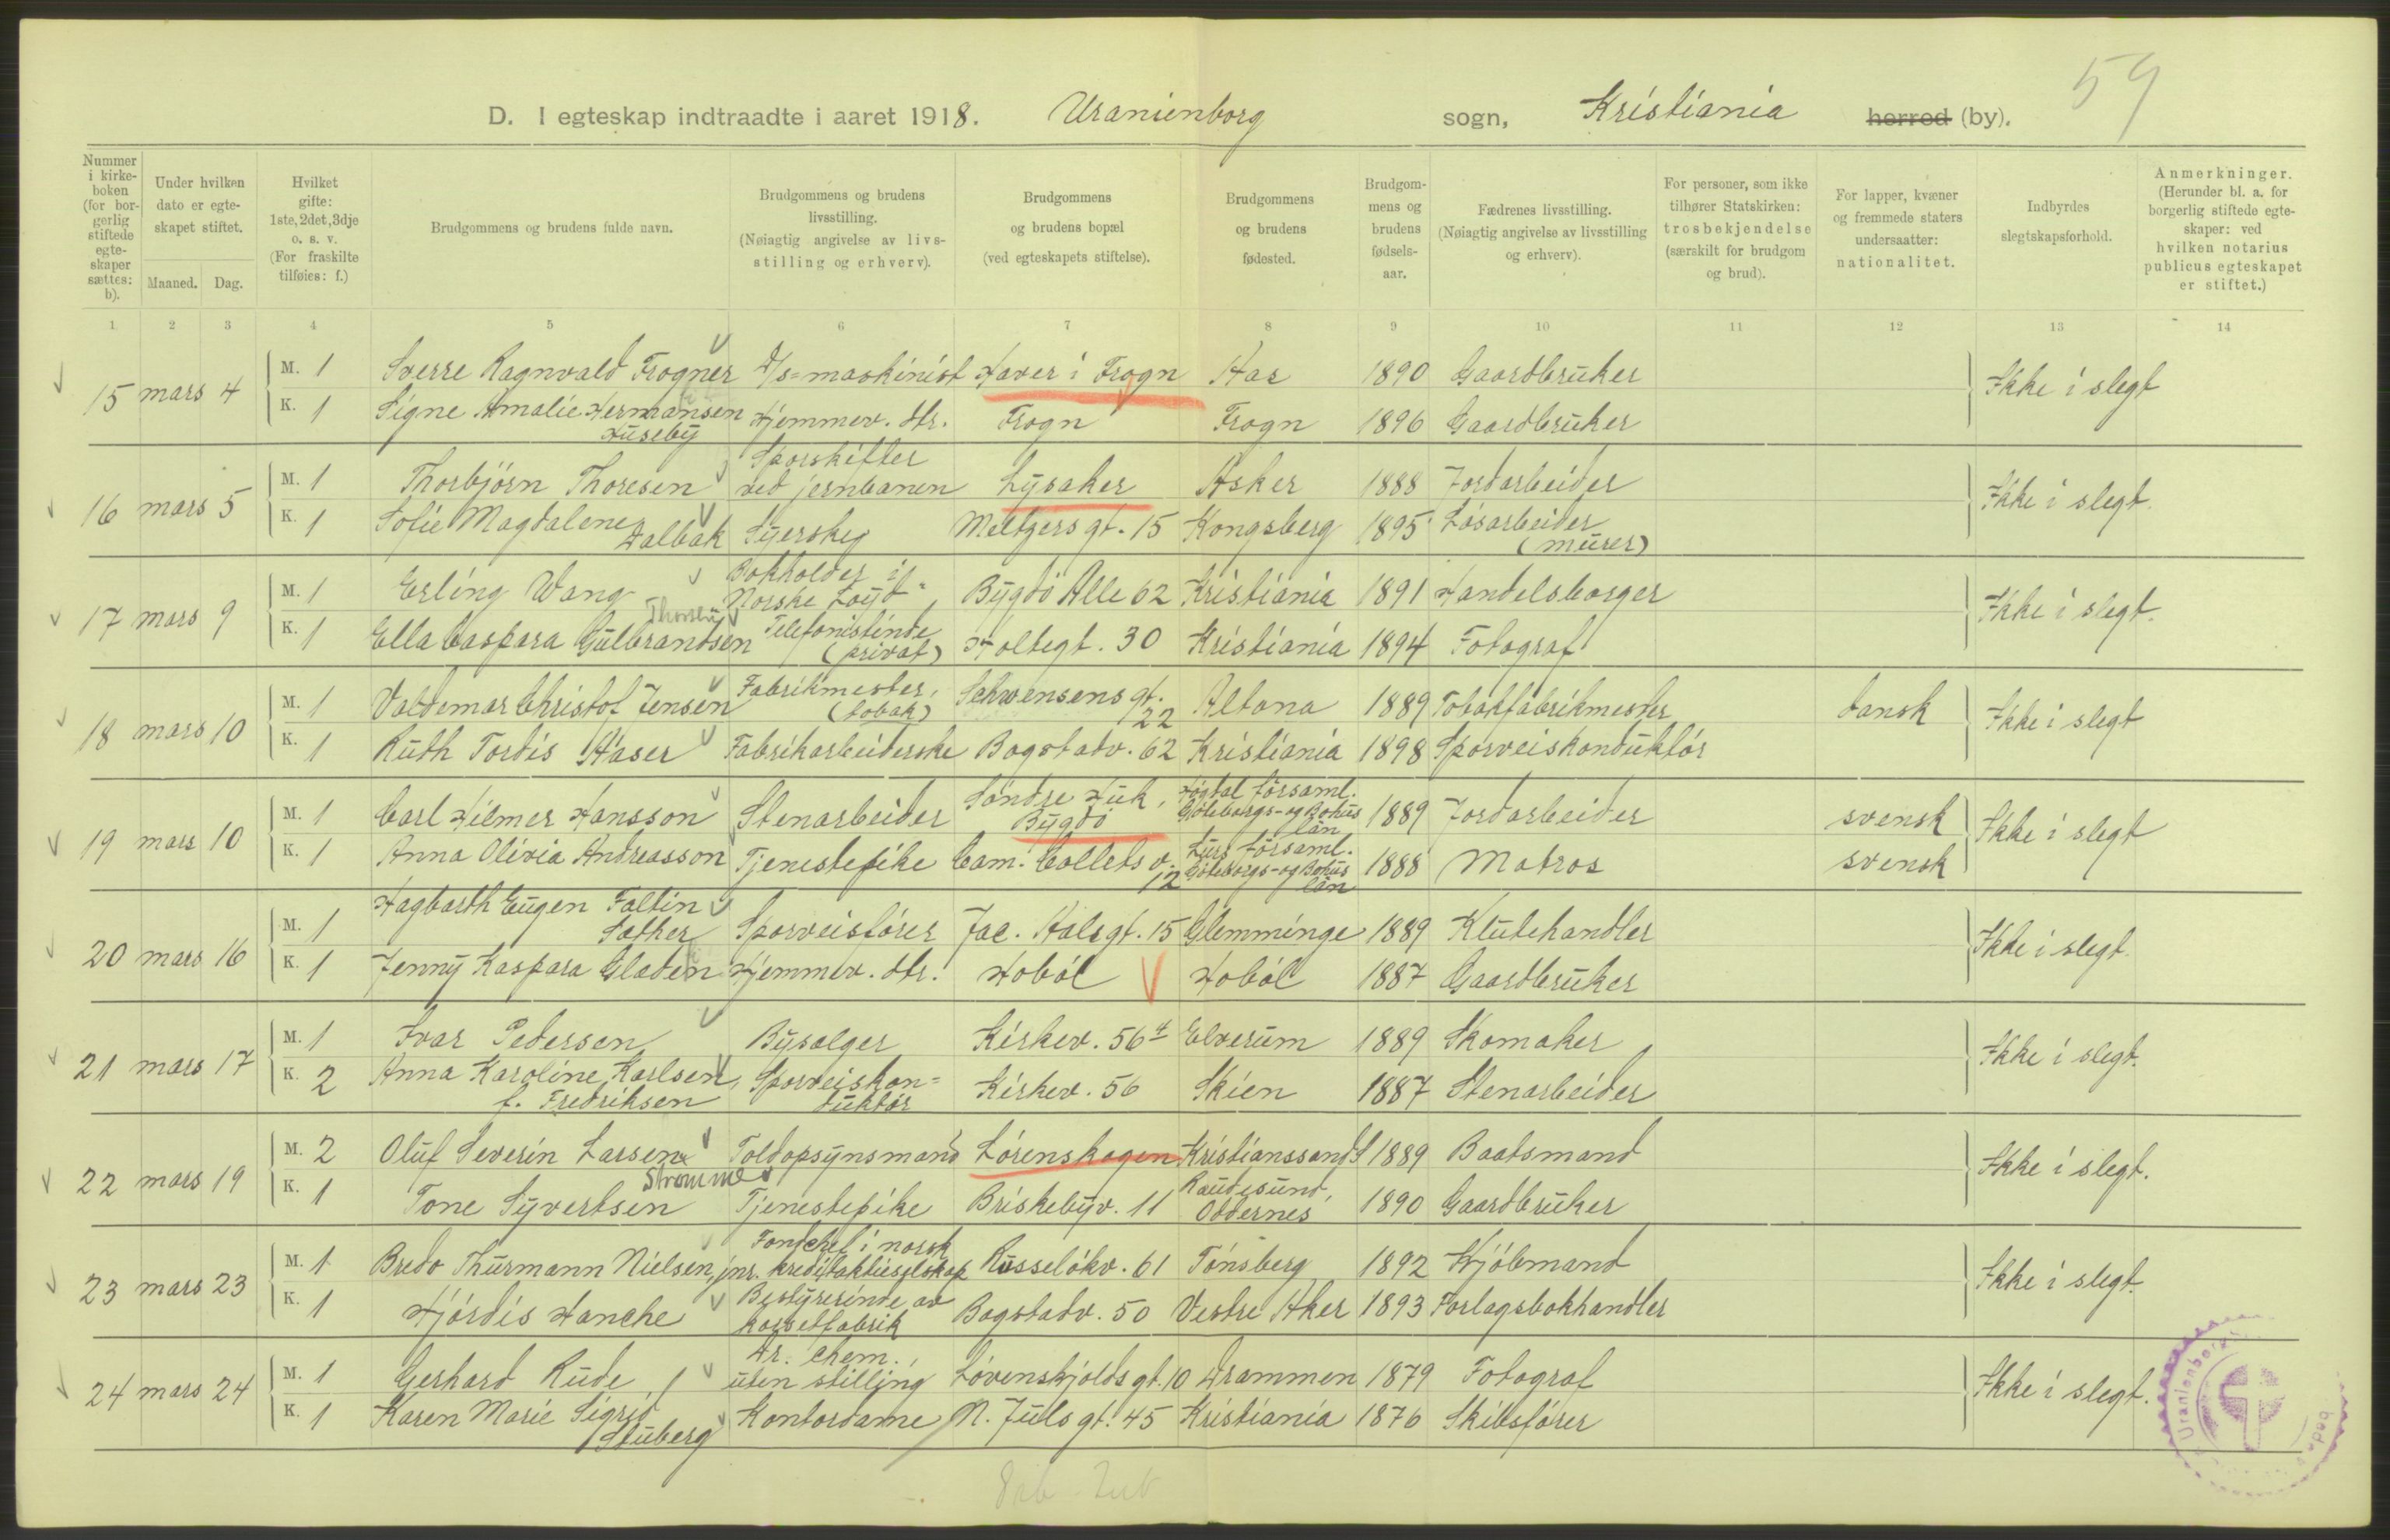 59
D. I egteskap indtraadte i aaret 1918. Uranienborg sogn, Kristiania herred (by).
Nummer i kirke-boken (for bor-gerlig stiftede egte-skaper sættes: b).
Under hvilken dato er egte-skapet stiftet.
Maaned. Dag.
Hvilket gifte: 1ste, 2det, 3dje o. s. v. (For fraskilte tilføies: f.)
Brudgommens og brudens fulde navn.
Brudgommens og brudens livsstilling. (Nøiagtig angivelse av livs-stilling og erhverv).
Brudgommens og brudens bopæl (ved egteskapets stiftelse).
Brudgommens og brudens fødested.
Brudgom-mens og brudens fødsels-aar.
Fædrenes livsstilling. (Nøiagtig angivelse av livsstilling og erhverv).
For personer, som ikke tilhører Statskirken: trosbekjendelse (særskilt for brudgom og brud).
For lapper, kvæner og fremmede staters undersaatter: nationalitet.
Indbyrdes slegtskapsforhold.
Anmerkninger. (Herunder bl. a. for borgerlig stiftede egte-skaper: ved hvilken notarius publicus egteskapet er stiftet.)
1 2 3 4 5 6 7 8 9 10 11 12 13 14
15 mars 4 M. 1 Sverre Ragnvald Frogner D/s=maskinist Haver i Frogn Aas 1890 Gaardbruker Ikke i slegt
K. 1 Signe Amalie Hermansen Huseby Hjemmev. dtr. Frogn Frogn 1896 Gaardbruker
16 mars 5 M. 1 Thorbjörn Thoresen Sporskifter ved jernbanen Lysaker Asker 1888 Jordarbeider Ikke i slegt.
K. 1 Sofie Magdalene Dalbak Syerske Meltzers gt. 15 Kongsberg 1895 Løsarbeider (murer)
17 mars 9 M. 1 Erling Wang Bokholder i "Norske Loyd" Bygdö Alle 62 Kristiania 1891 Handelsborger Ikke i slegt.
K. 1 Ella Caspara Gulbrandsen Telefonistinde (privat) Holtegt. 30 Kristiania 1894 Fotograf
18 mars 10 M. 1 Valdemar Christof Jensen Fabrikmester, (tobak) Schwensens gt. 22 Altona 1889 Tobakfabrikmester dansk Ikke i slegt
K. 1 Ruth Tordis Haser Fabrikarbeiderske Bogstadv. 62 Kristiania 1898 Sporveiskonduktör
19 mars 10 M. 1 Carl Hilmer Hansson Stenarbeider Söndre Huk, Bygdö Högdal församl. Göteborgs- og Bohus län 1889 Jordarbeider svensk Ikke i slegt
K. 1 Anna Olivia Andreasson Tjenestepike Cam. Colletts v. 12 Lurs församl. Göteborgs- og Bohus län 1888 Matros svensk
20 mars 16 M. 1 Hagbarth Eugen Faltin Sæther Sporveisfører Jac. Aalsgt. 15 Glemminge 1889 Klutehandler Ikke i slegt.
K. 1 Jenny Kaspara Gladen Hjemmev. dtr. Haböl Haböl 1887 Gaardbruker
21 mars 17 M. 1 Ivar Pedersen Bysælger Kirkev. 56 Elverum 1889 Skomaker Ikke i slegt.
K. 2 Anna Karoline Karlsen, f. Fredriksen Sporveiskon=duktör Kirkev. 56 Skien 1887 Stenarbeider
22 mars 19 M. 2 Oluf Severin Larsen Toldopsynsmand Lörenskogen Kristianssand S 1889 Baatsmand Ikke i slegt.
K. 1 Tone Syvertsen Strømme Tjenestepike Briskebyv. 11 Randesund, Oddernes 1890 Gaardbruker
23 mars 23 M. 1 Bredo Thurmann Nielsen, jnr. Fondchef i norsk kreditaktieselskap Russelökv. 61 Tönsberg 1892 Kjöbmand Ikke i slegt.
K. 1 Hjördis Hanche Bestyrerinde av korsetfabrik Bogstadv. 50 Vestre Aker 1893 Forlagsbokhandler
24 mars 24 M. 1 Gerhard Rude Dr. chem., uten stilling Lövenskjoldsgt. 10 Drammen 1879 Fotograf Ikke i slegt.
K. 1 Karen Marie Sigrid Stuberg Kontordame N. Juls gt. 45 Kristiania 1876 Skibsfører
Uranienborg